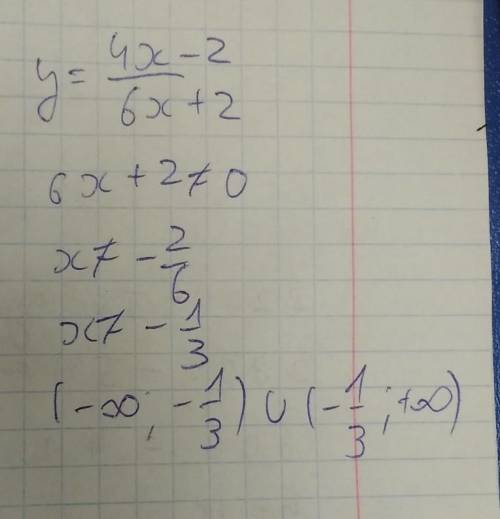 y = (4x - 2)/(6x + 2)
6x + 2 ≠ 0
x ≠ - 2/6
x ≠ - 1/3
(-∞; - 1/3) ∪ (- 1/3; +∞)